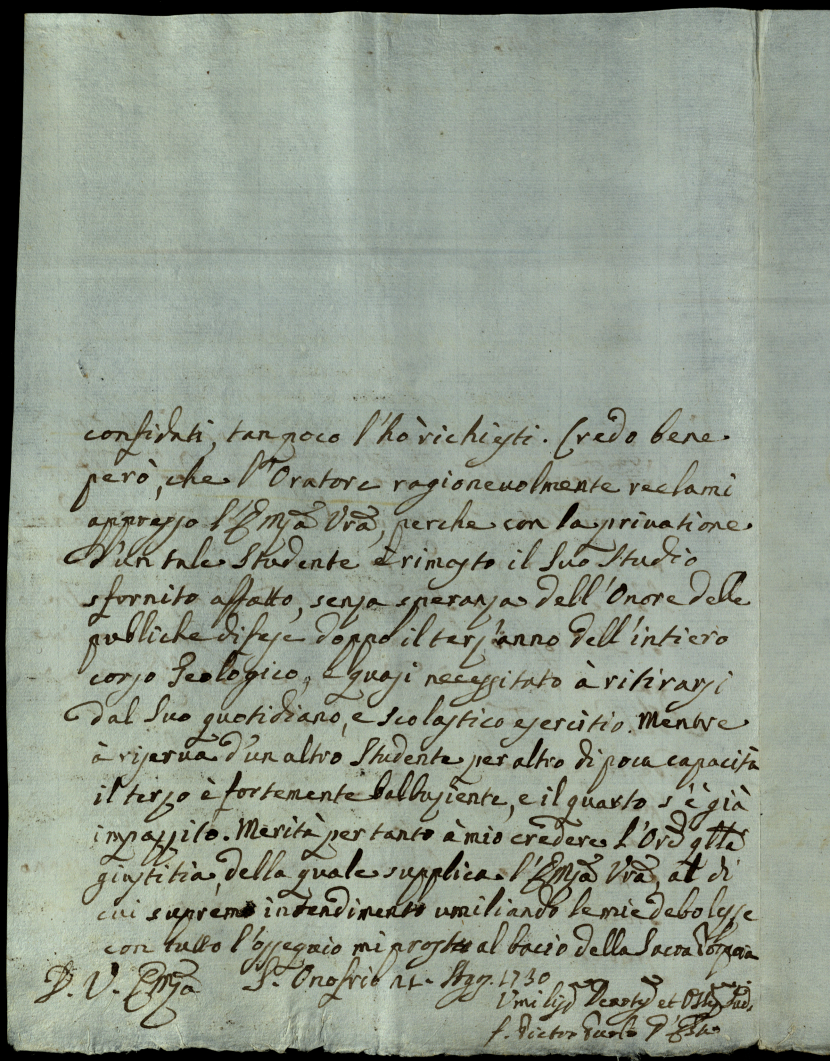 confidati, tanpoco l'hò richiesti. Credo bene
però, che l'Oratore ragionevolmente reclami
appresso l'Emza Vra, perche con la privatione
d'un tale Studente è rimasto il Suo Studio
sfornito affatto, senza speranza dell'Onore delle
publiche difese doppo il terz'anno dell'intiero
corso Teologico, e quasi necessitato à ritirarsi
dal Suo quotidiano, e scolastico esercitio. Mentre
à riserva d'un altro Studente per altro di poca capacità
il terzo è fortemente balbuziente, e il quarto s'è già
impazzito. Merità per tanto à mio credere l'Ore
giustitia, della quale supplica l'Emza Vra, al di
cui supremo intendimento umiliando le mie debolezze
con tutto l'ossequio mi prostro al bacio della Sacra Porpora
D. V. Emza S. Onofrio 1730
et
f.